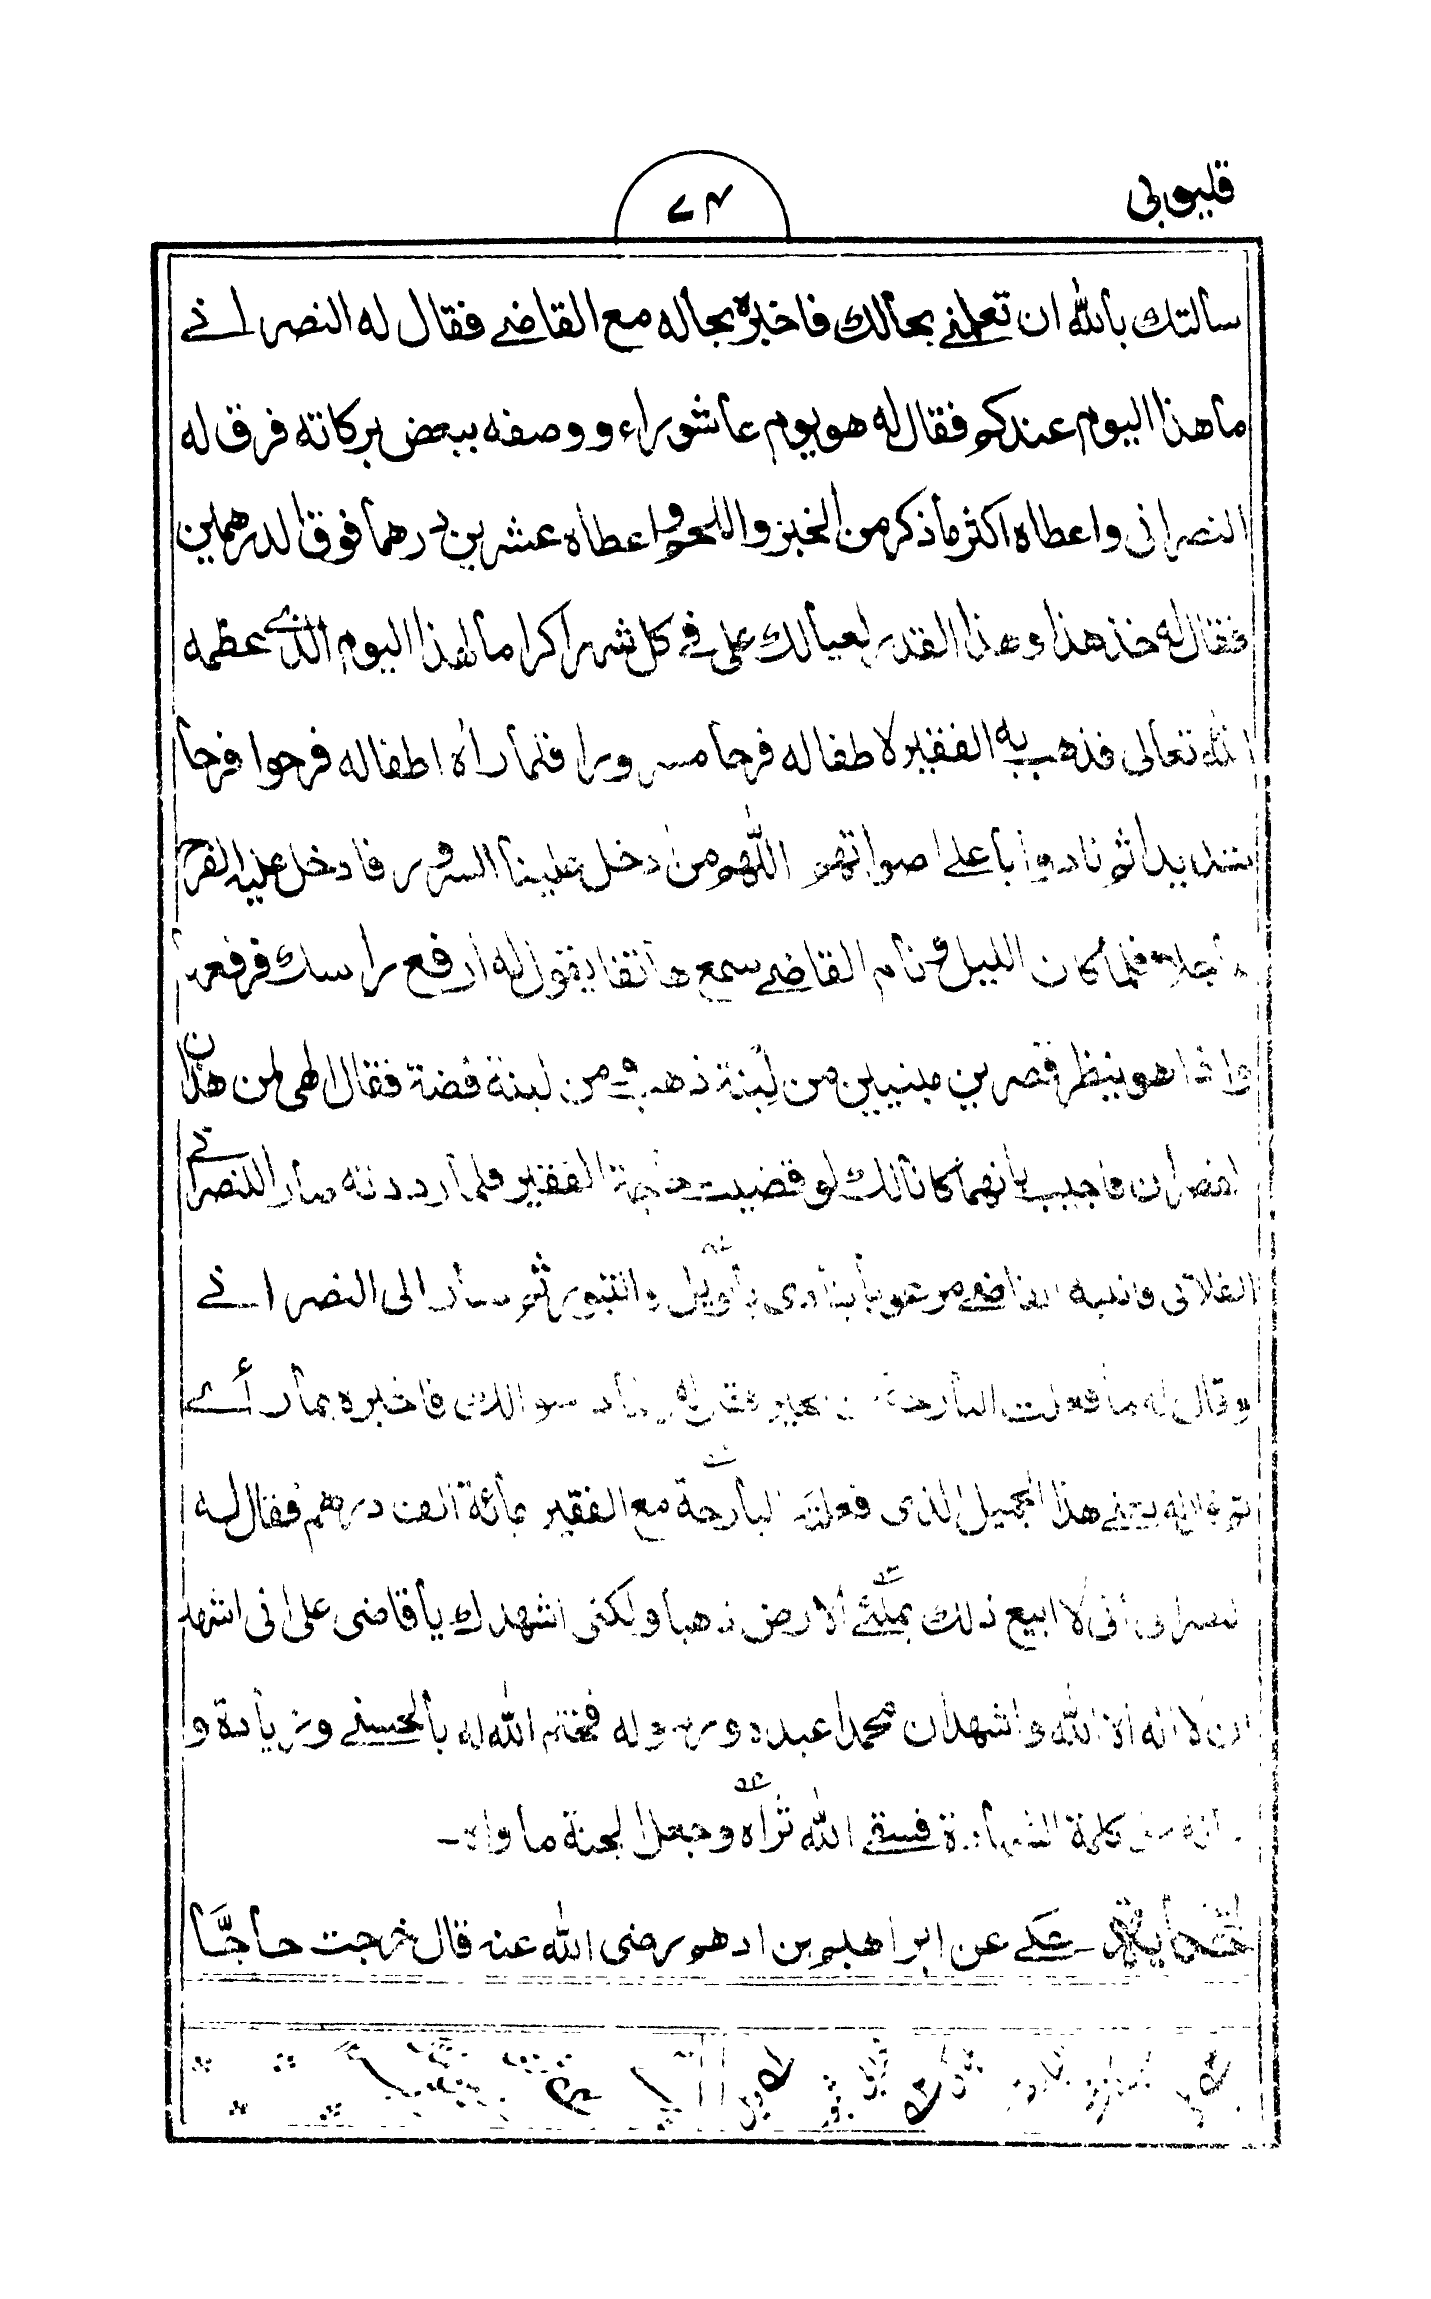 قليوبي
٧٣
سألتك بالله ان تعلمنے بحالك فاخبره بحاله مع القاضے فقال له النصرانے
ما هذا اليوم عندكم فقال له هو يوم عاشوراء ووصفه ببعض بركاته فرق له
النصرانى واعطاه اكثر ما ذكر من الخبز واللحم واعطاه عشرين درهما فوق الدرهمين
فقال له خذ هذا وهذا القدر لعيالك على فے كل شهر اكراما لهذا اليوم الذے عظمه
الله تعالى فذهب به الفقير لاطفاله فرحا مسرورا فلما رأه اطفاله فرحوا فرحا
شديدا ثم نادوا باعلے اصواتهم اللهم من ادخل علينا السرور فادخل عليه الفرح
عاجلا فلما كان الليل ونام القاضے سمع هاتفا يقول له ارفع راسك فرفعه
واذا هو ينظر قصرين مبنيين من لبنة ذهب ومن لبنة فضة فقال الهى لمن هذان
القصران فاجيب بانهما كانا لك لو قضيت حاجة الفقير فلما رددته صارا للنصرانے
الفلانى وانتبه القاضے مرعوبا ينادى بالويل والثبور ثم سار الى النصرانے
وقال له ما فعلت البارحة من خير فقال له وما سوالك فاخبره بما رأے
ثم قال له بعنے هذا الجميل الذى فعلته البارحة مع الفقير بمائة الف درهم فقال له
النصرانى انى لا ابيع ذلك بملئے الارض ذهبا ولكنى اشهدك يا قاضى على انى اشهد
ان لا اله الا الله واشهد ان محمدا عبده ورسوله فختم الله له بالحسنے وزيادة و
كلمة الشهادة فسقے الله ثراه وجعل الجنة ماواه -
حكے عن ابراهيم بن ادهم رضى الله عنه قال خرجت حاجًّا